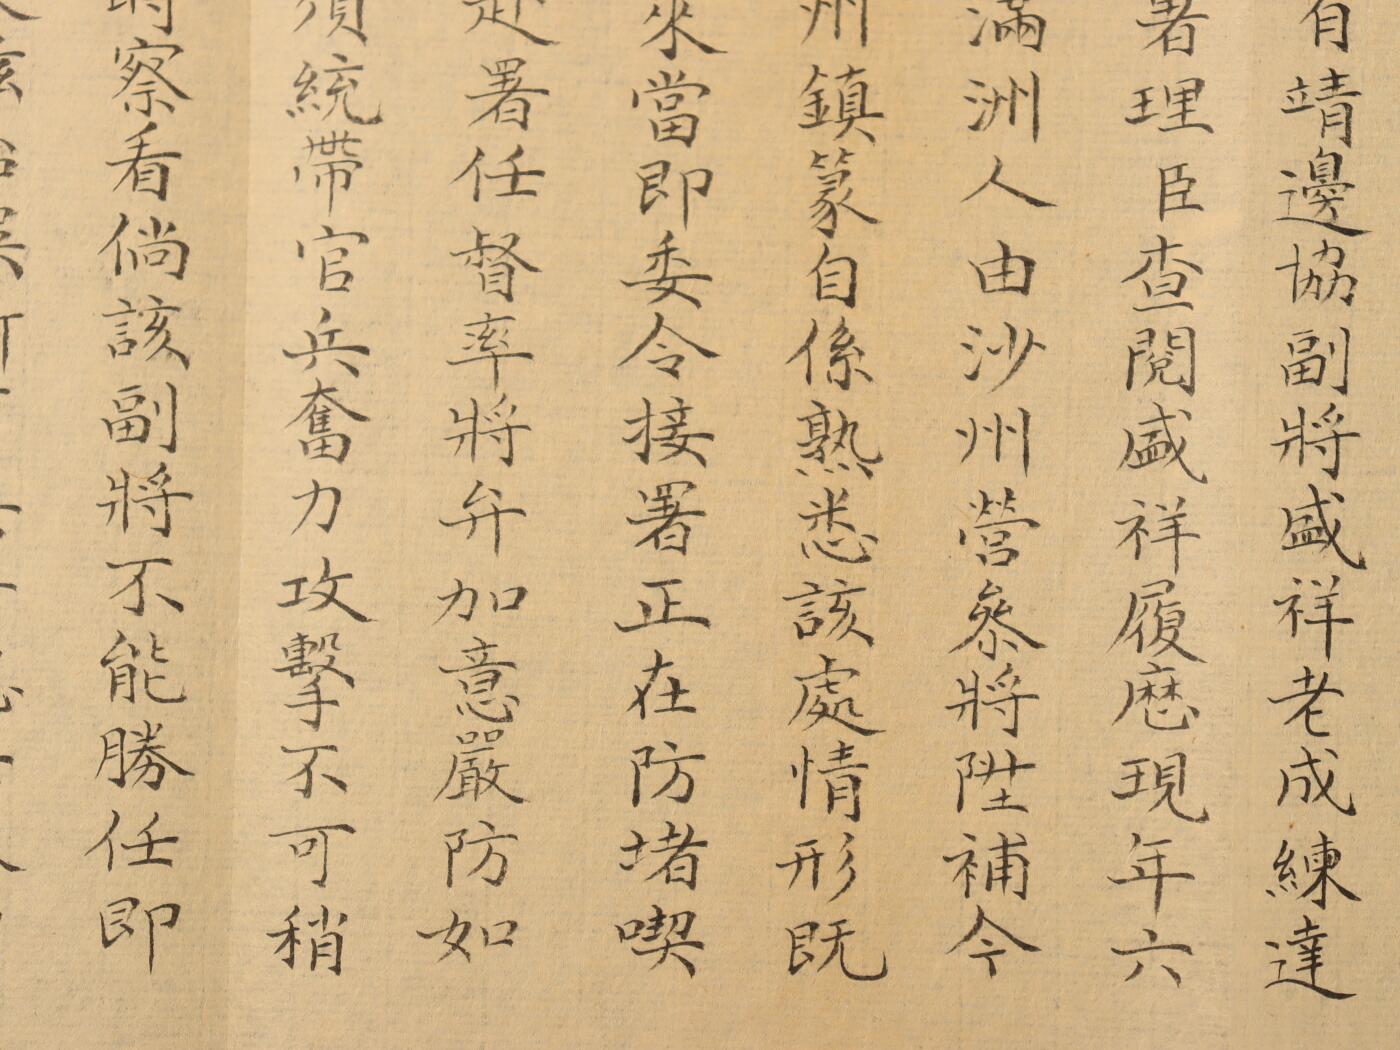 有靖邊協副將盛祥老成練達
署理臣查閱盛祥履歷現年六
滿洲人由沙州營叅將陞補今
州鎮篆自係熟悉該處情形既
來當即委令接署正在防堵喫
赴署任督率將弁加意嚴防如
須統帶官兵奮力攻擊不可稍
察看倘該副將不能勝任即